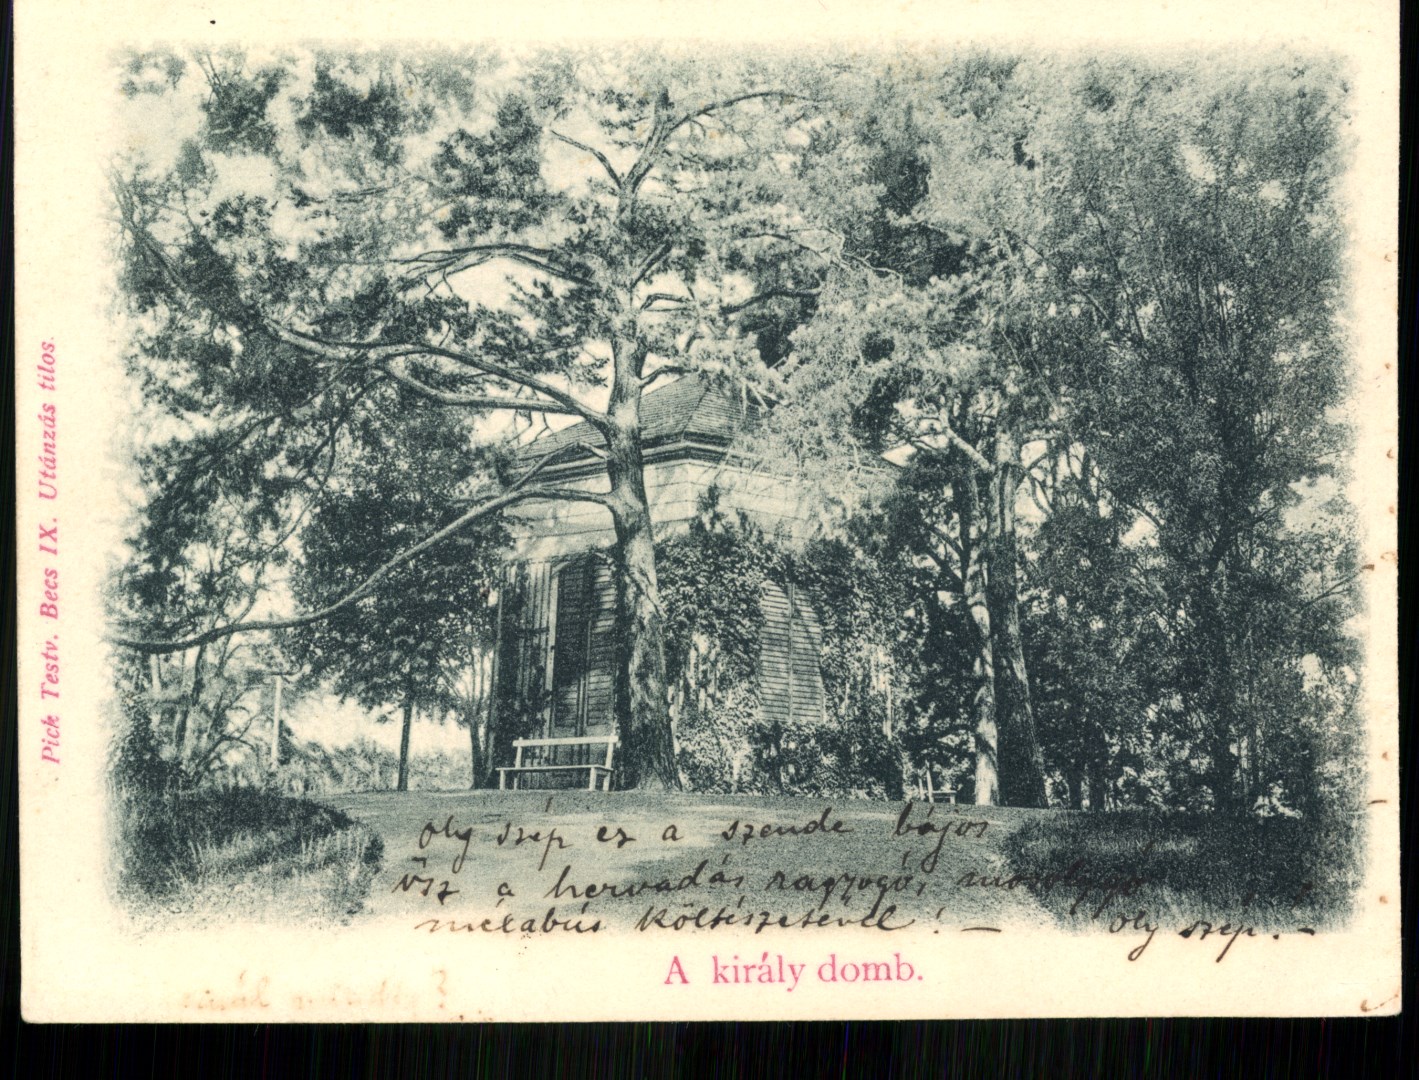 Pick Testv. Becs IX. Utánzás tilos.
oly szép ez a szende bájos
ősz a hervadás ragyogó, mosolygó
mélabús költészetével! –
oly szép. –
A király domb.